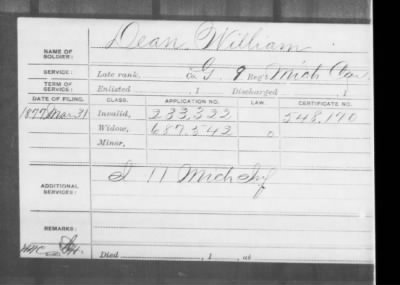 Dean, William
NAME OF SOLDIER:
SERVICE: Late rank, Co. G, 9 Reg't Mich Cav.
TERM OF SERVICE: Enlisted , 1 Discharged , 1
DATE OF FILING. CLASS. APPLICATION NO. LAW. CERTIFICATE NO.
1877 Mar. 31 Invalid, 233,322 548,190
Widow, 687,542 0
Minor,
ADDITIONAL SERVICES: I 11 Mich Inf
REMARKS:
Died , 1 , at